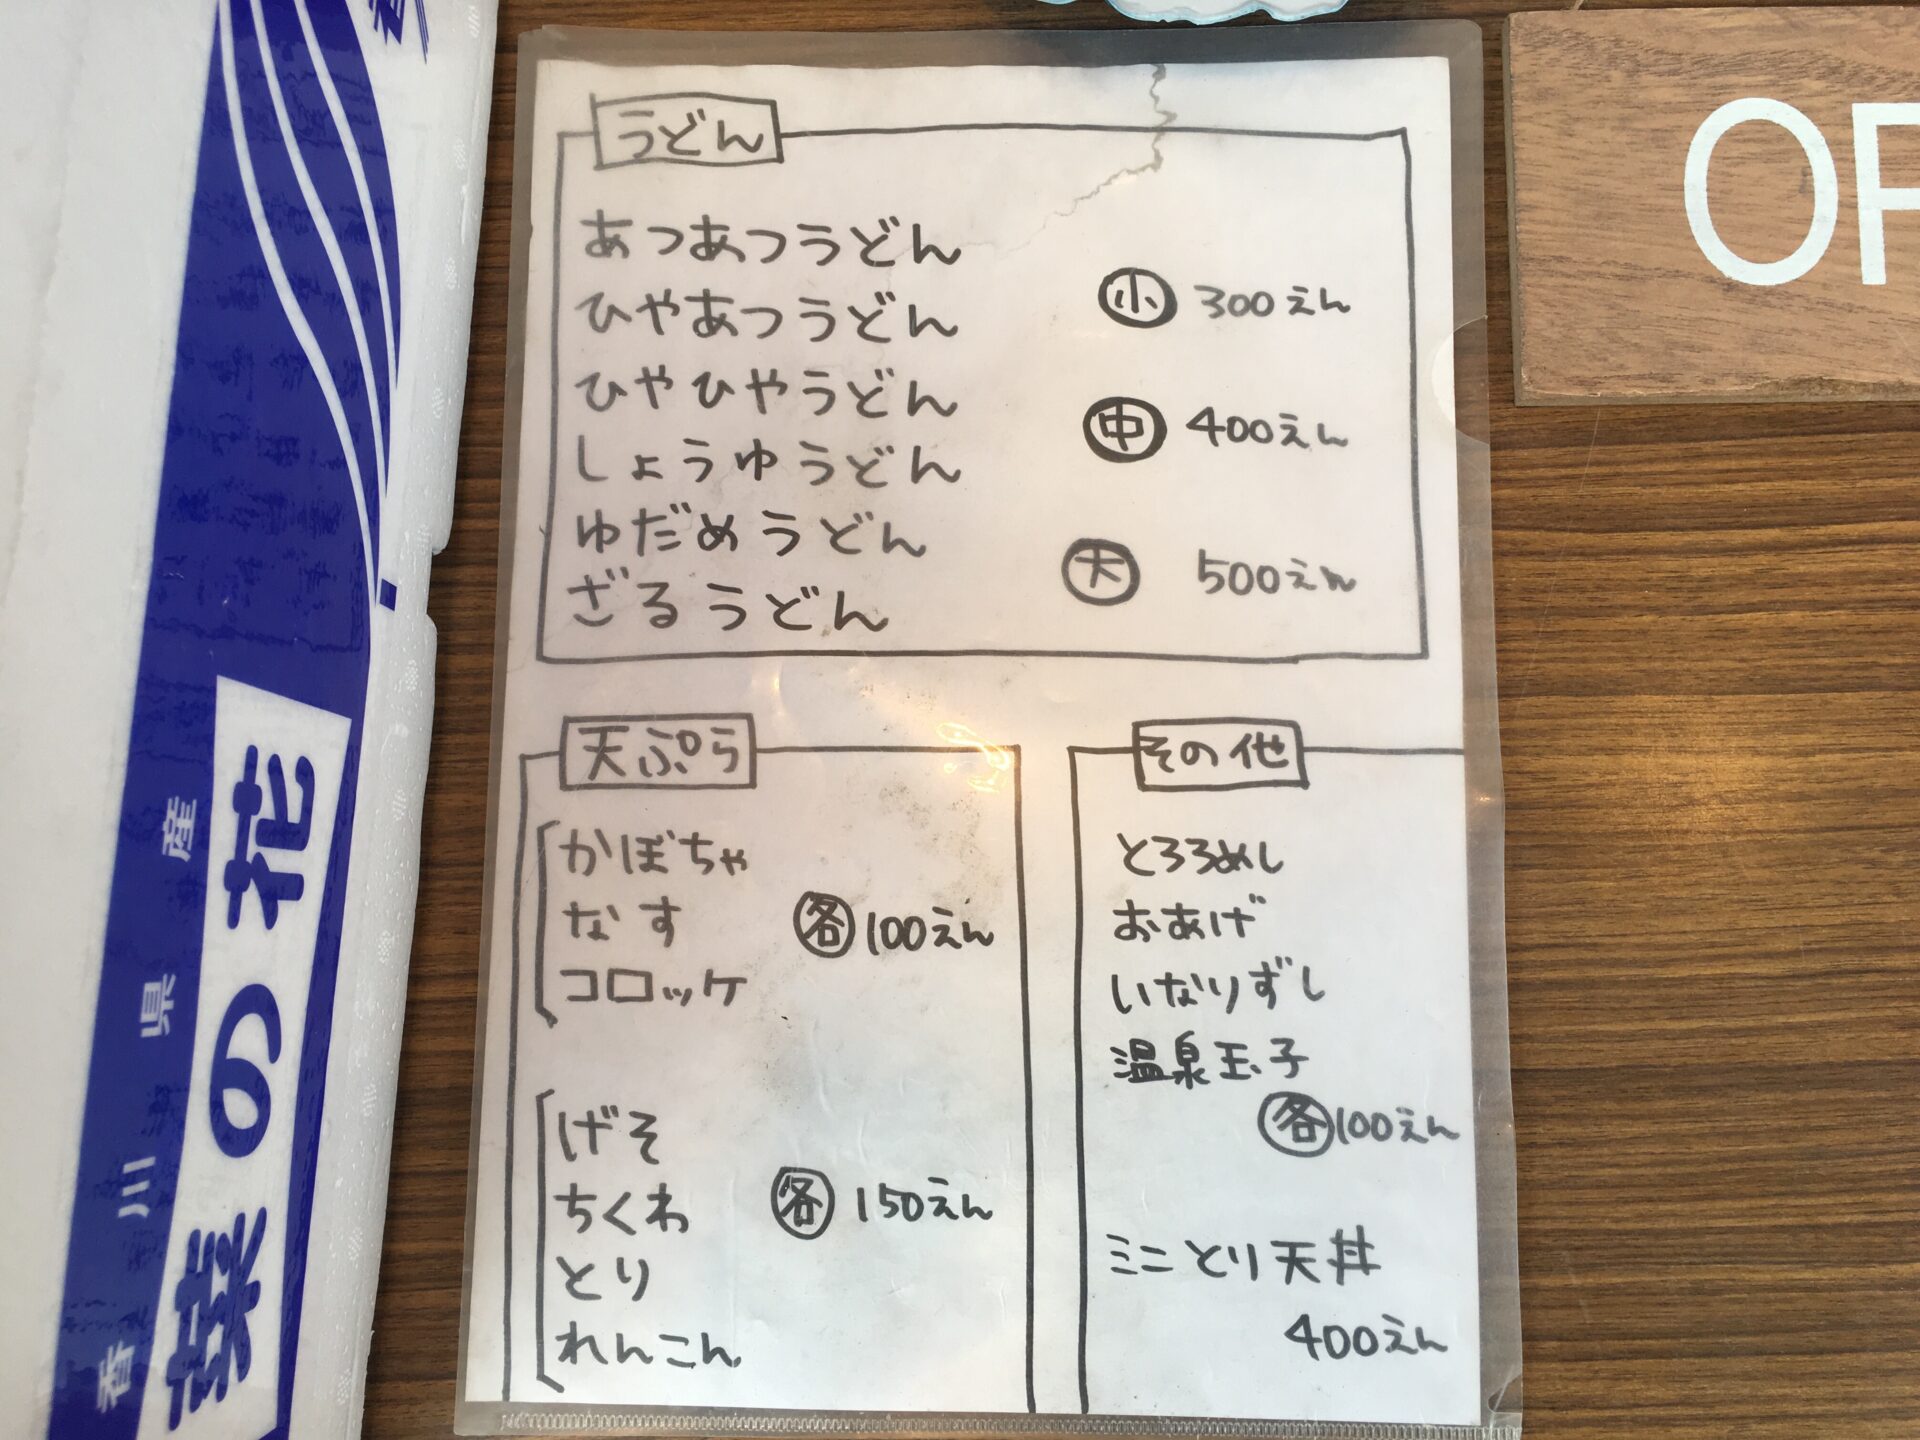 うどん
あつあつうどん
ひやあつうどん
ひやひやうどん
しょうゆうどん
ゆだめうどん
ざるうどん
小 300えん
中 400えん
大 500えん
天ぷら
かぼちゃ
なす
コロッケ
各 100えん
げそ
ちくわ
とり
れんこん
各 150えん
その他
とろろめし
おあげ
いなりずし
温泉玉子
各 100えん
ミニとり天丼
400えん
香川県産
菜の花